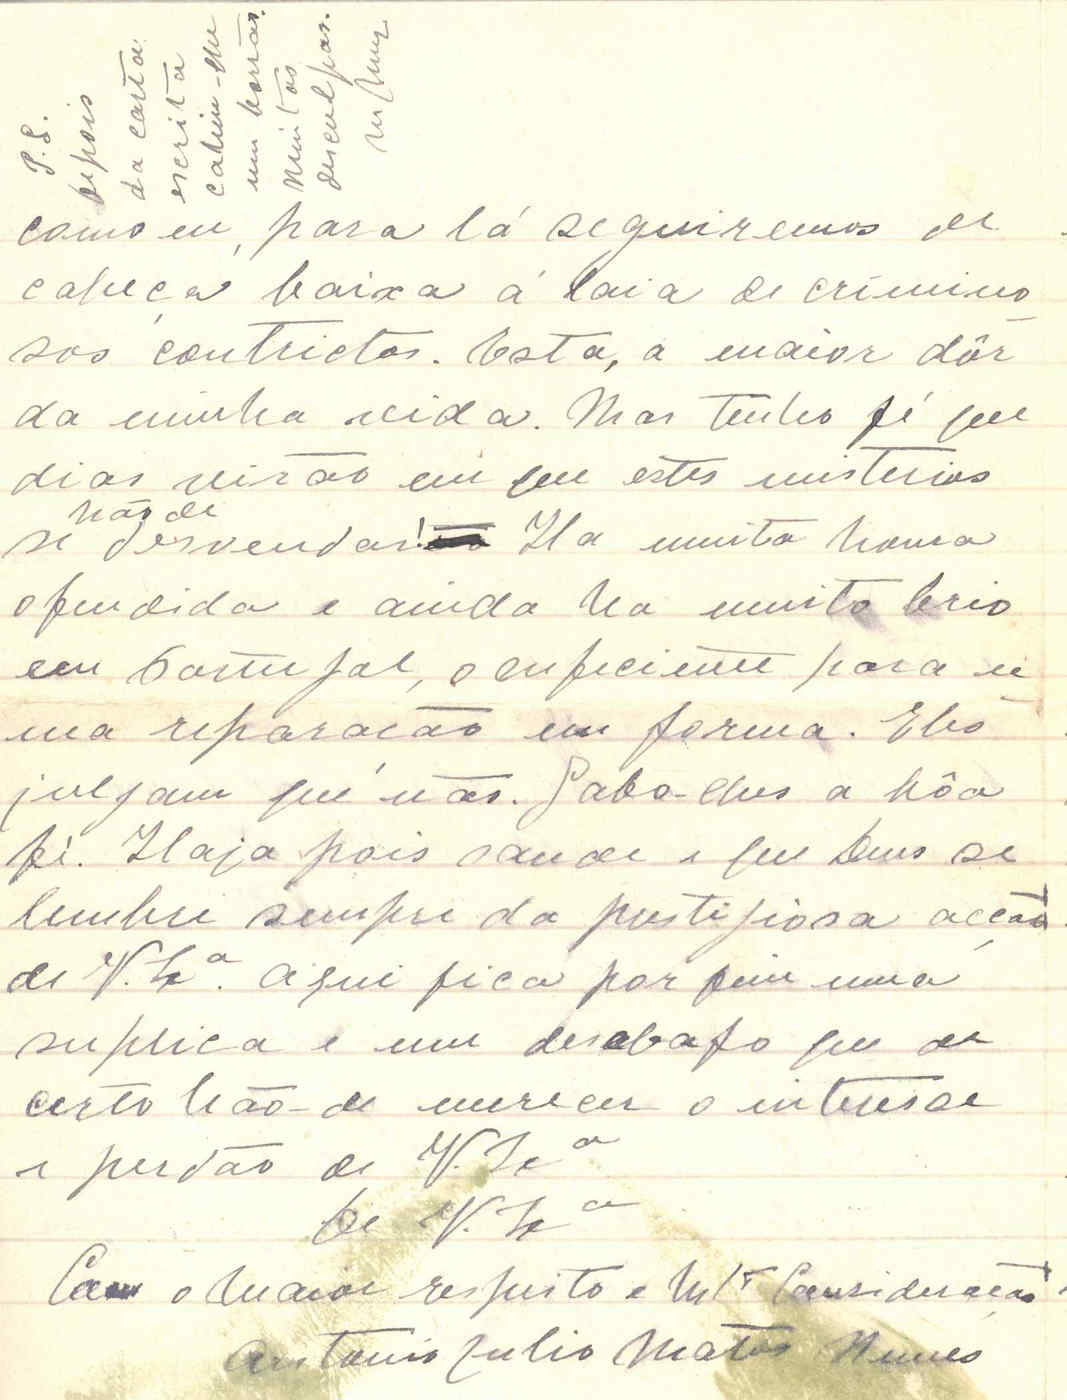 P.S.
depois
da carta
escrita
cahiu-me
um borrão.
Muitas
desculpas.
M Nunes
como eu, para lá seguiremos de
cabeça baixa á laia de crimino
sos contrictos. Esta, a maior dôr
da minha vida. Mas tenho fé que
dias virão em que estes misterios
hão de
se desvendar! Ha muita honra
ofendida e ainda ha muito brio
em Portugal, o suficiente para u
ma reparação em forma. Eles
julgam que não. Gabo-lhes a bôa
fé. Haja pois saude e que Deus se
lembre sempre da prestigiosa acção
de V. Exª. Aqui fica por fim uma
suplica e um desabafo que de
certo hão-de merecer o interesse
e perdão de V. Exª
De V. Exª
Com o maior respeito e Mtª Consideração
Antonio Julio Matos Nunes